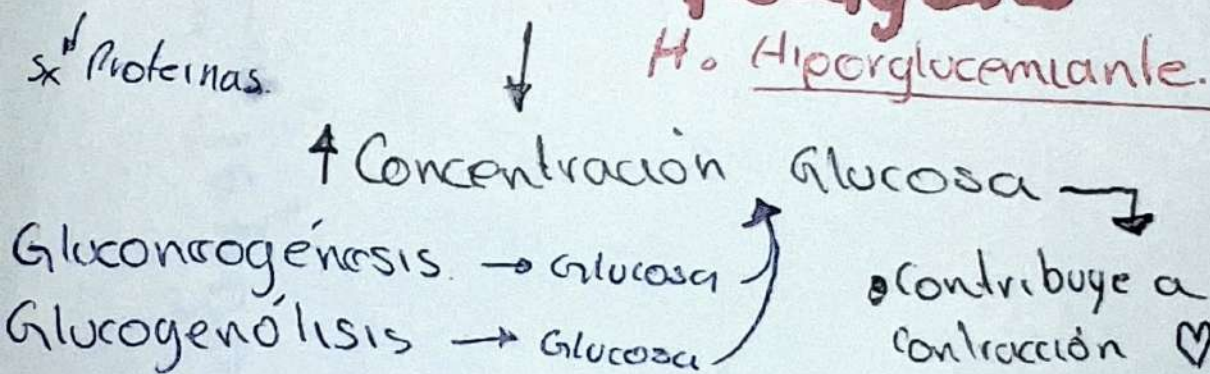 H. Hiperglucemiante.
Sx Proteinas.
↓
↑ Concentración Glucosa
Gluconeogénesis. → Glucosa
Glucogenólisis → Glucosa
• Contribuye a
Contracción ♡